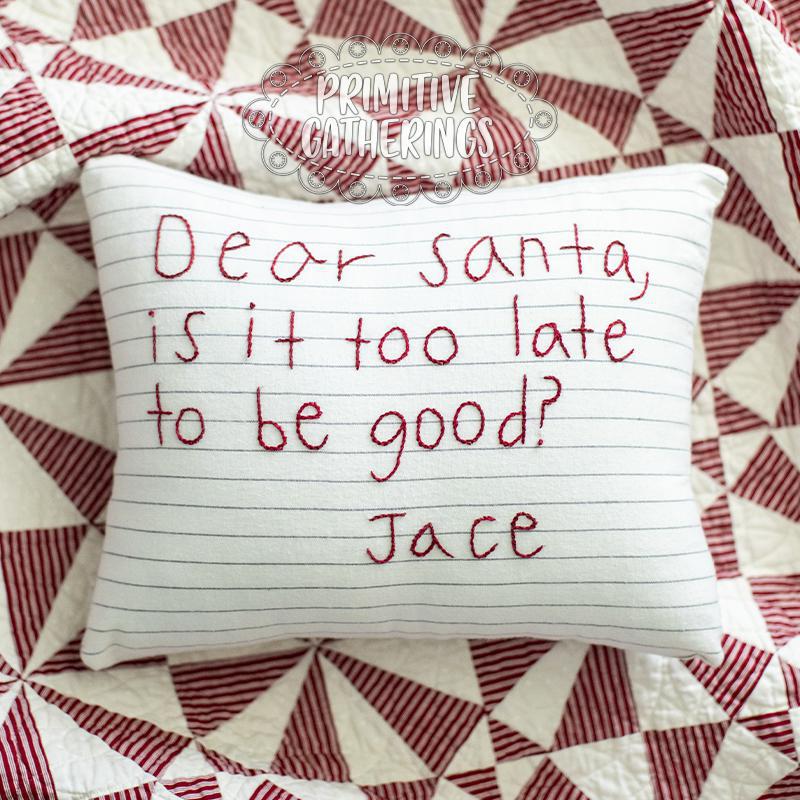 PRIMITIVE
GATHERINGS
Dear santa,
is it too late
to be good?
Jace